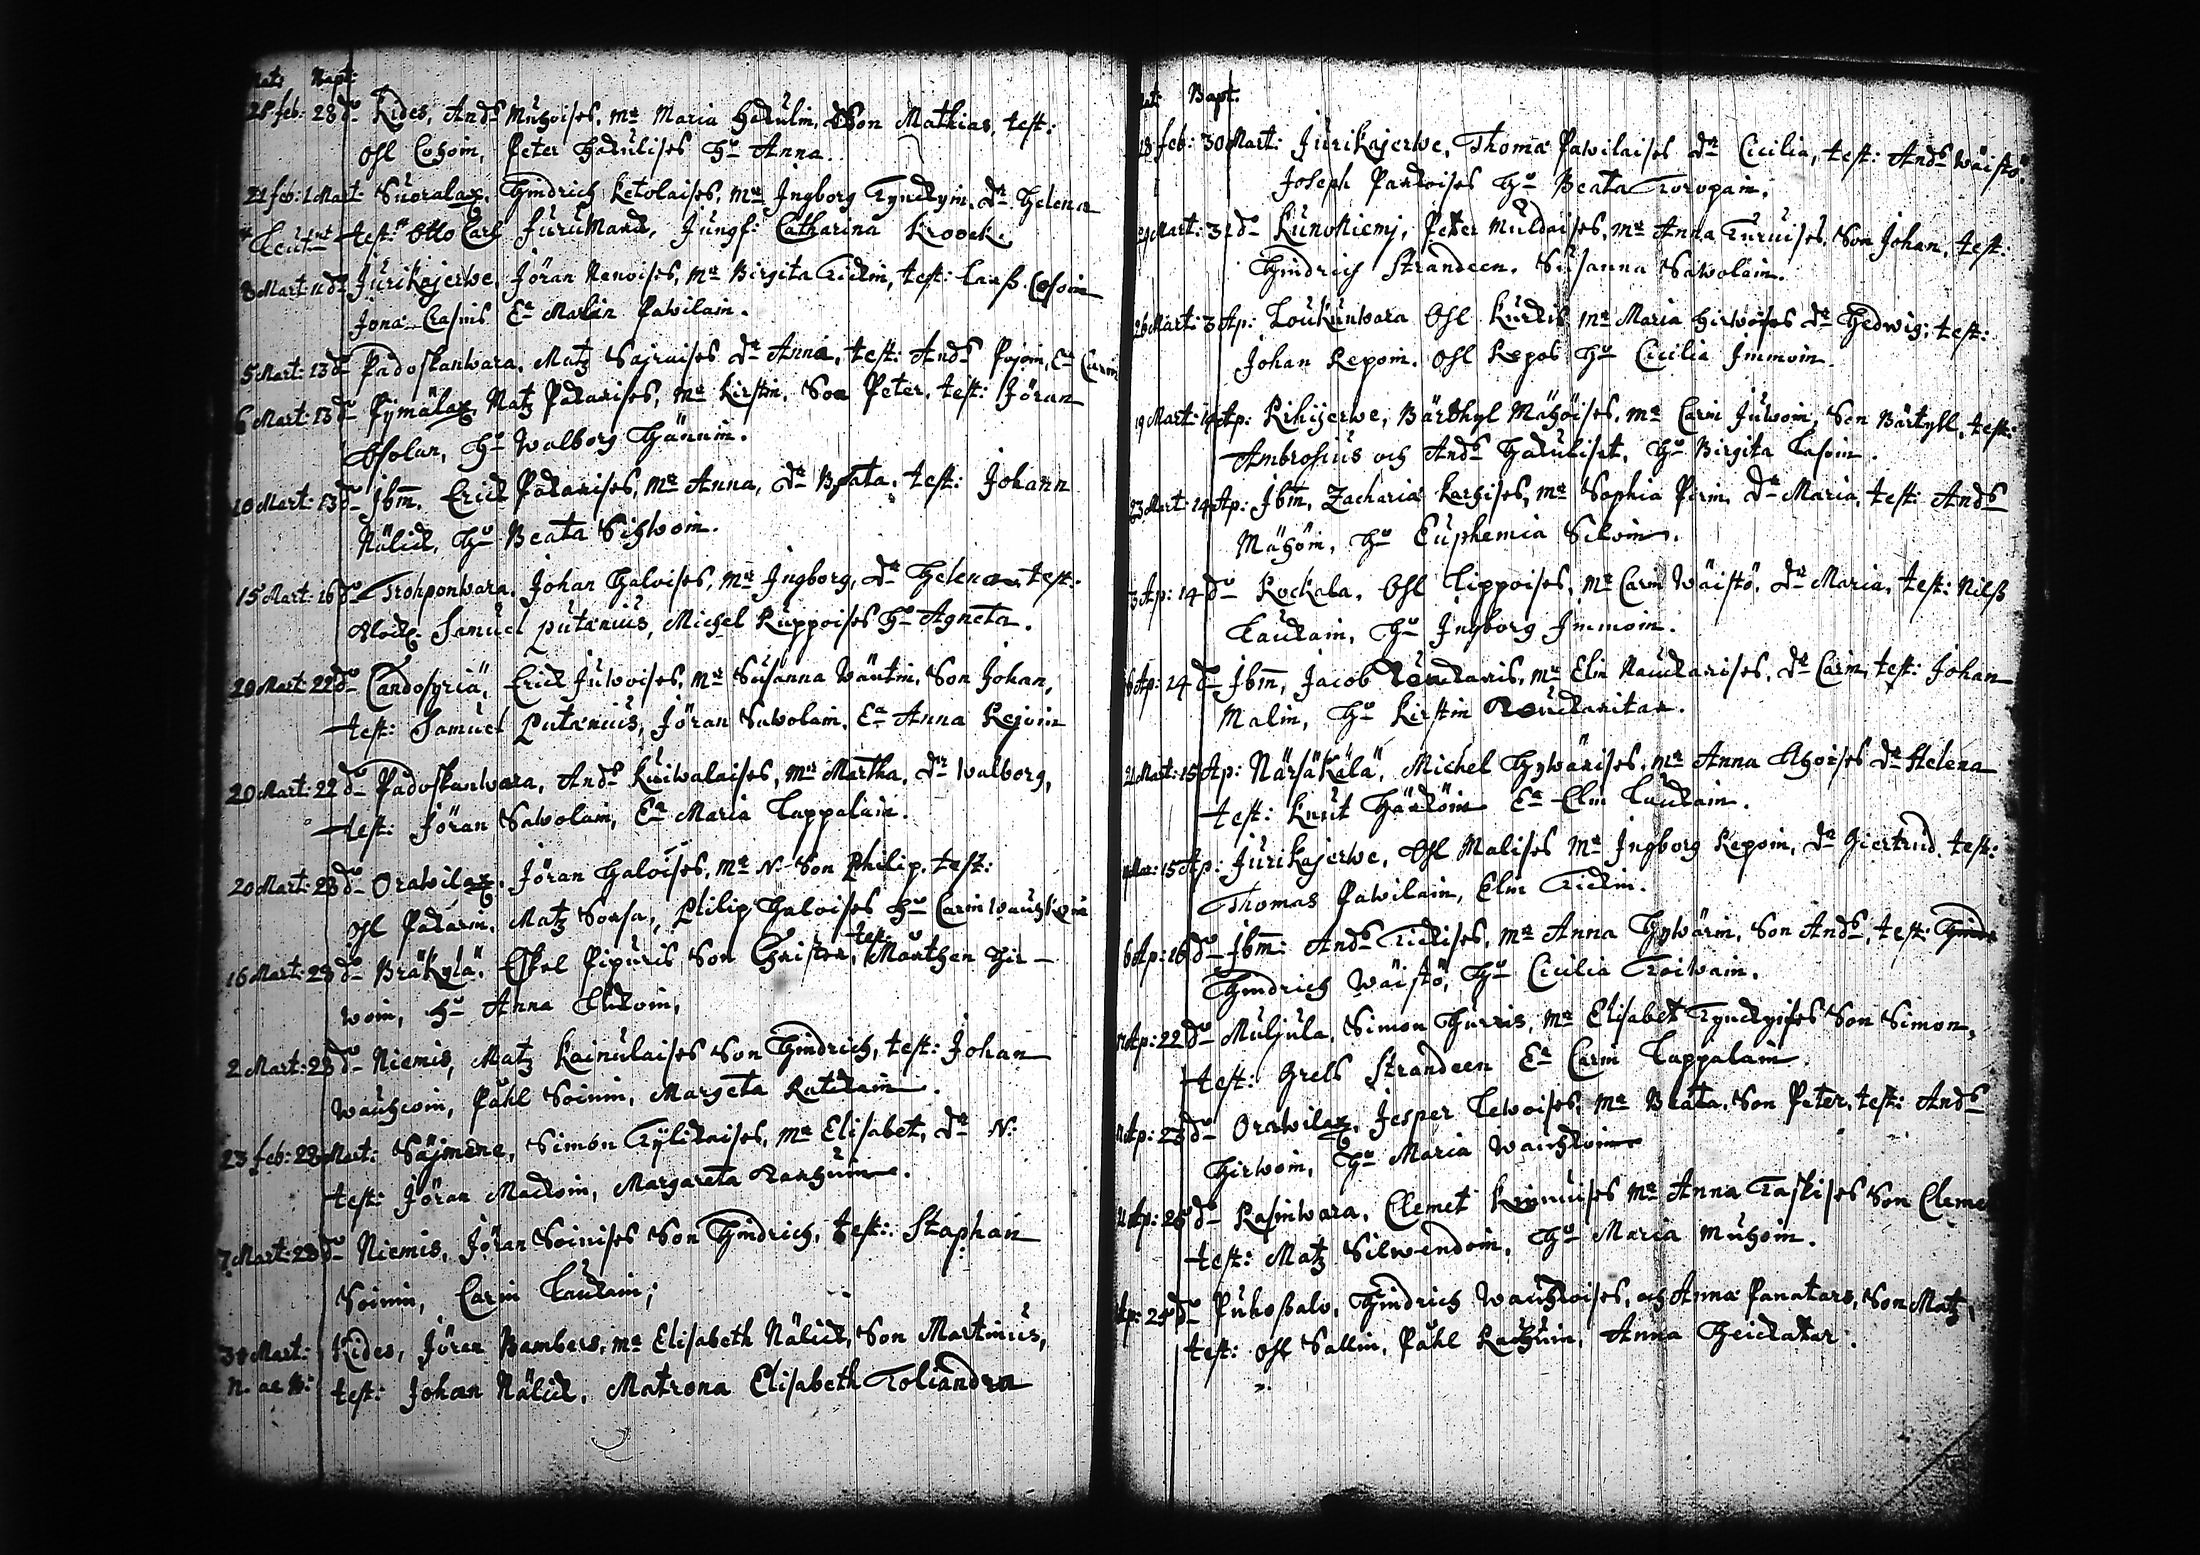 Nat: Bapt:
25 feb: 28 do Kides, Ands Muhoises, mr Maria Hakulin, Son Mathias, test:
Ohl Cohoin, Peter Hakulises hu Anna.
21 feb: 1 Mart Suoralax, Hindrich Ketolaises, mr Ingborg Tynckyin, dr Helena
Leutnt test: Otto Carl Jurumard, Jungf: Catharina Kroock.
8 Mart 11 do Jurikajerwe, Jöran Nenoises, mr Birgita Tickin, test: Larß Cosoin
Jona Crasnis Er Malin Pawilain.
5 Mart: 13 do Padoskanwara, Matz Sajraises dr Anna, test: Ands Pojoin, Er Carin
6 Mart: 13 do Pymälax, Matz Pakarises, mr Kirstin, Son Peter, test: Jöran
Asolan, hu Walborg Hännin.
10 Mart: 13 do Ibm, Erick Pakarises, mr Anna, dr Beata, test: Johann
Nälick, hu Beata Sihwoin.
15 Mart: 16 do Trohponwara, Johan Haloises, mr Ingborg, dr Helena, test:
Samuel Putænius, Michel Kuppoises hu Agneta.
20 Mart: 22 do Candosyriä, Erick Juwoises, mr Susanna Wäntin, Son Johan,
test: Samuel Putænius, Jöran Sawolain, Er Anna Rejoin
20 Mart: 22 do Padoskanwara, Ands Kuiwalaises, mr Martha, dr Walborg,
test: Jöran Sawolain, Er Maria Lappalain.
20 Mart: 23 do Orawilax, Jöran Haloises, mr N. Son Philip, test:
Ohl Pakarin, Matz Sorsa, Philip Haloises hu Carin Wauhkoin
16 Mart: 23 do Bräkylä, Eskel Pipuris Son Christer, test: Mårthen Hir-
woin, hu Anna Turoin,
2 Mart: 23 do Niemis, Matz Kainulaises Son Hindrich, test: Johan
Wauhcoin, Påhl Soinin, Margeta Ratikain.
23 feb: 22 Mart: Säjmene, Simon Kylikaises, mr Elisabet, dr N:
test: Jöran Mackoin, Margareta Karhuin.
7 Mart: 23 do Niemis, Jöran Soinises Son Hindrich, test: Staphan
Soinin, Carin Laukain;
30 Mart: Kides, Jöran Bambers, mr Elisabeth Nälick, Son Martinus,
test: Johan Nälick, Matrona Elisabeth Toliandra
Nat: Bapt.
feb: 30 Mart: Jurikajerwe, Thoma Pawilaises dr Cicilia, test: Ands Wäistö
Joseph Parkoises hu Beata Toropain.
29 Mart: 31 do Kunoniemj, Peter Muldaises, mr Anna Turuises, Son Johan, test:
Hindrich Strandeen, Susanna Sawolain.
26 Mart: 3 Ap: Loukunwara Ohl Kurkis mr Maria Hirwoises dr Hedwig, test:
Johan Repoin, Ohl Repos hu Cicilia Immoin.
19 Mart: 14 Ap: Kihijerwe, Bärthyl Mähöises, mr Carin Juwoin, Son Bärtyll, test:
Ambrosius och Ands Hakulist, hu Birgita Lasoin.
23 Mart: 14 Ap: Ibm, Zacharia Karhises, mr Sophia Pirin, dr Maria, test: Ands
Mähöin, hu Euphemia Silvoin.
3 Ap: 14 do Kockala, Ohl Lippoises, mr Carin Wäistö, dr Maria, test: Nilß
Laukain, hu Ingborg Immoin.
6 Ap: 14 do Ibm, Jacob Rouckaris, mr Elin Nauckarises, dr Carin, test: Johan
Malin, hu Kirstin Rouckaritar.
21 Mart: 15 Ap: Närsäkälä, Michel Hywärises, mr Anna Ahoises dr Helena
test: Knut Härköin Er Elin Laukain.
Mar: 15 Ap: Jurikajerwe, Ohl Malises mr Ingborg Repoin, dr Giertrud, test:
Thomas Pawilain, Elin Tickin.
6 Ap: 16 do Ibm: Ands Tickises, mr Anna Hywärin, Son Ands, test:
Hindrich Wäistö, hu Cicilia Toiwain.
Ap: 22 do Muljula, Simon Hurris, mr Elisabet Tynckyises Son Simon,
test: Grels Strandeen Er Carin Lappalain.
Ap: 23 do Orawilax, Jesper Lewoises, mr Beata, Son Peter, test: Ands
Hirwoin, hu Maria Wauhkoin
Ap: 25 do Rasinwara, Clemet Kinnuises mr Anna Taskises Son Cleme
test: Matz Silwendoin, hu Maria Muhoin.
Ap: 25 do Puhoßalo, Hindrich Wauhkoises, och Anna Panatars, Son Matz,
test: Ohl Sallin, Påhl Rauhuin, Anna Heickatar.